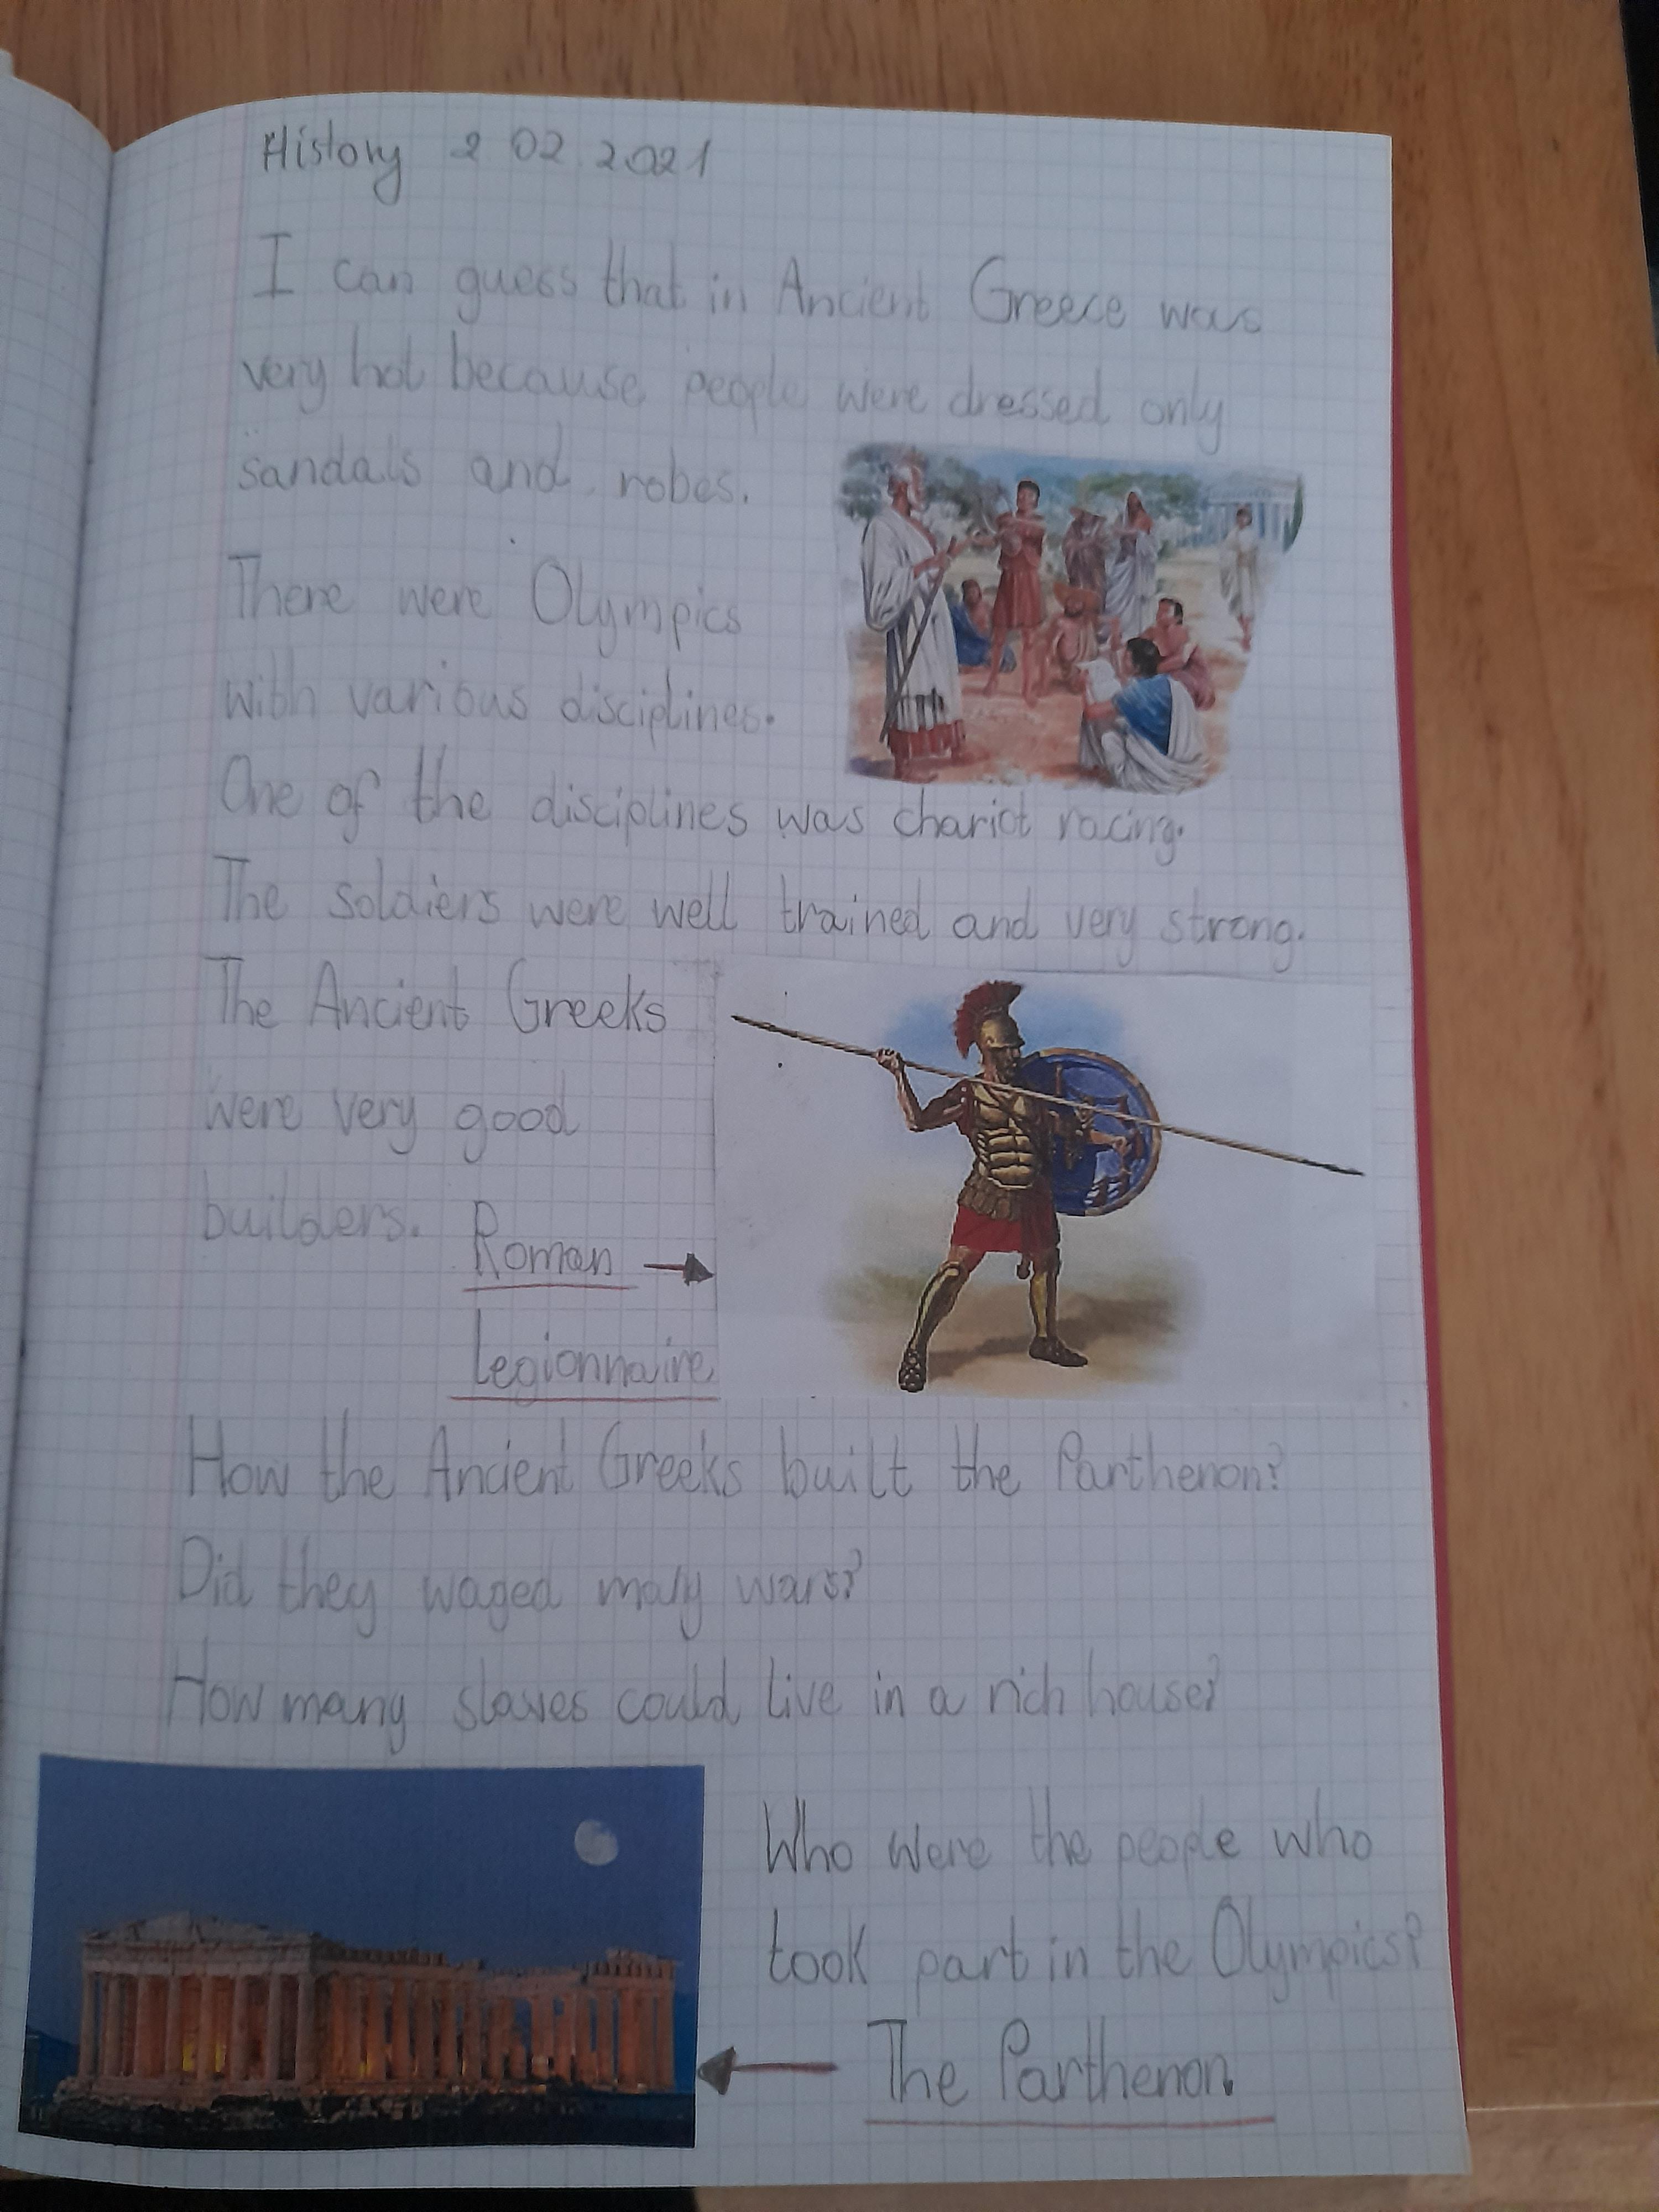 History 2 02 2021
I can guess that in Ancient Greece was
very hot because people were dressed only
sandals and robes.
There were Olympics
with various disciplines.
One of the disciplines was chariot racing.
The soldiers were well trained and very strong.
The Ancient Greeks
were very good
builders.
Roman
Legionnaire
How the Ancient Greeks built the Parthenon?
Did they waged many wars?
How many slaves could live in a rich house?
Who were the people who
took part in the Olympics?
The Parthenon